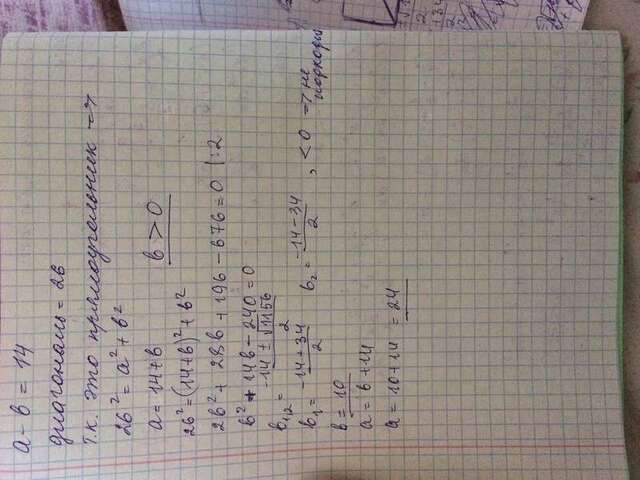 a - b = 14
диагональ = 26
т.к. это прямоугольник =>
26² = a² + b²
a = 14 + b b > 0
26² = (14+b)² + b²
2b² + 28b + 196 - 676 = 0 |:2
b² + 14b - 240 = 0
b₁,₂ = (-14 ± √1156)/2
b₁ = (-14 + 34)/2 b₂ = (-14 - 34)/2 , < 0 => не подходит
b = 10
a = b + 14
a = 10 + 14 = 24